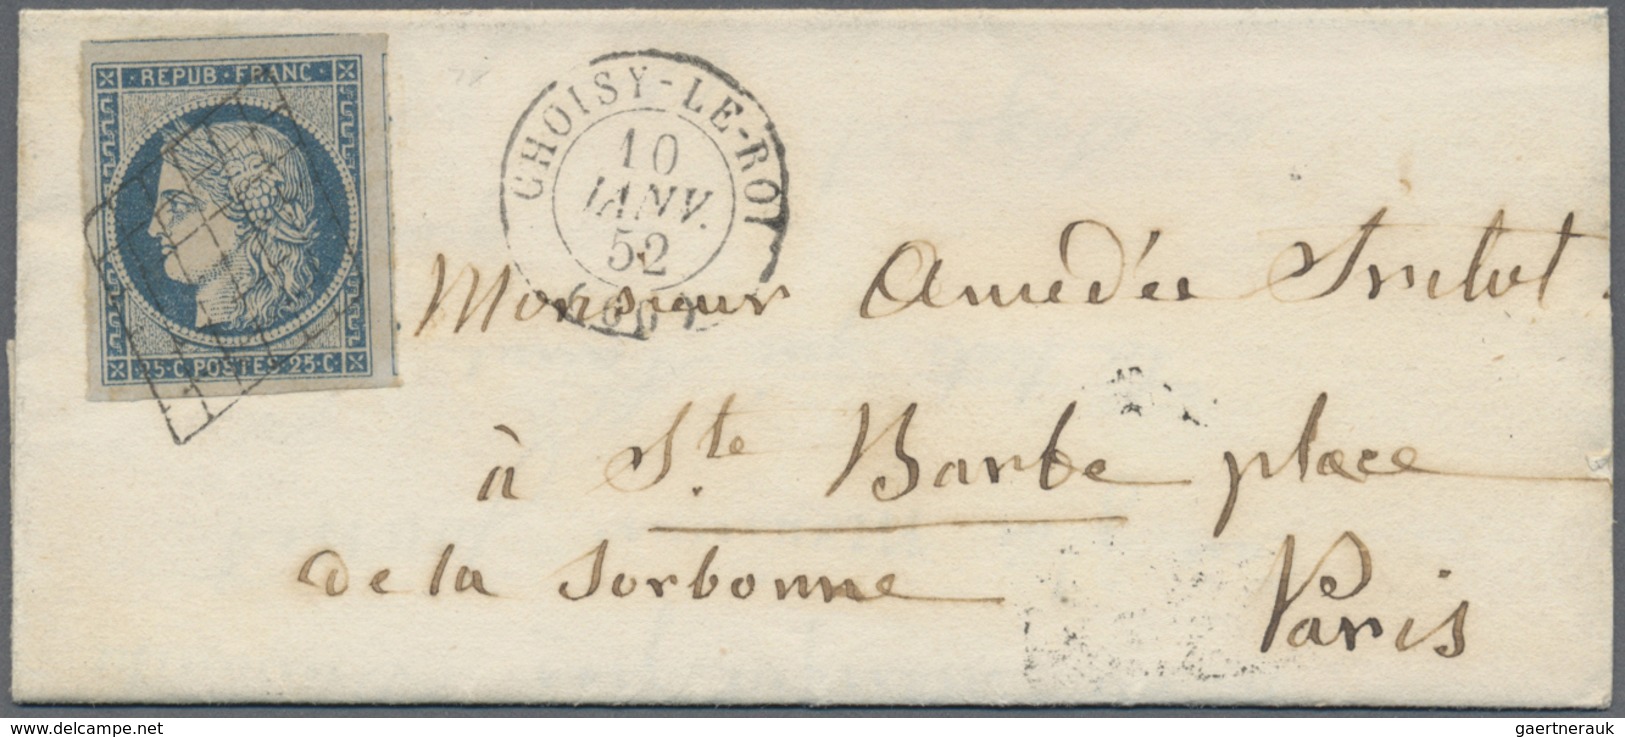 REPUB · FRANC
25 · C POSTES 25 · C
CHOISY-LE-ROI
10
JANV.
52
Monsieur Amédée
à Ste Barbe place
de la Sorbonne
Paris
www.delcampe.net
gaertnerauk